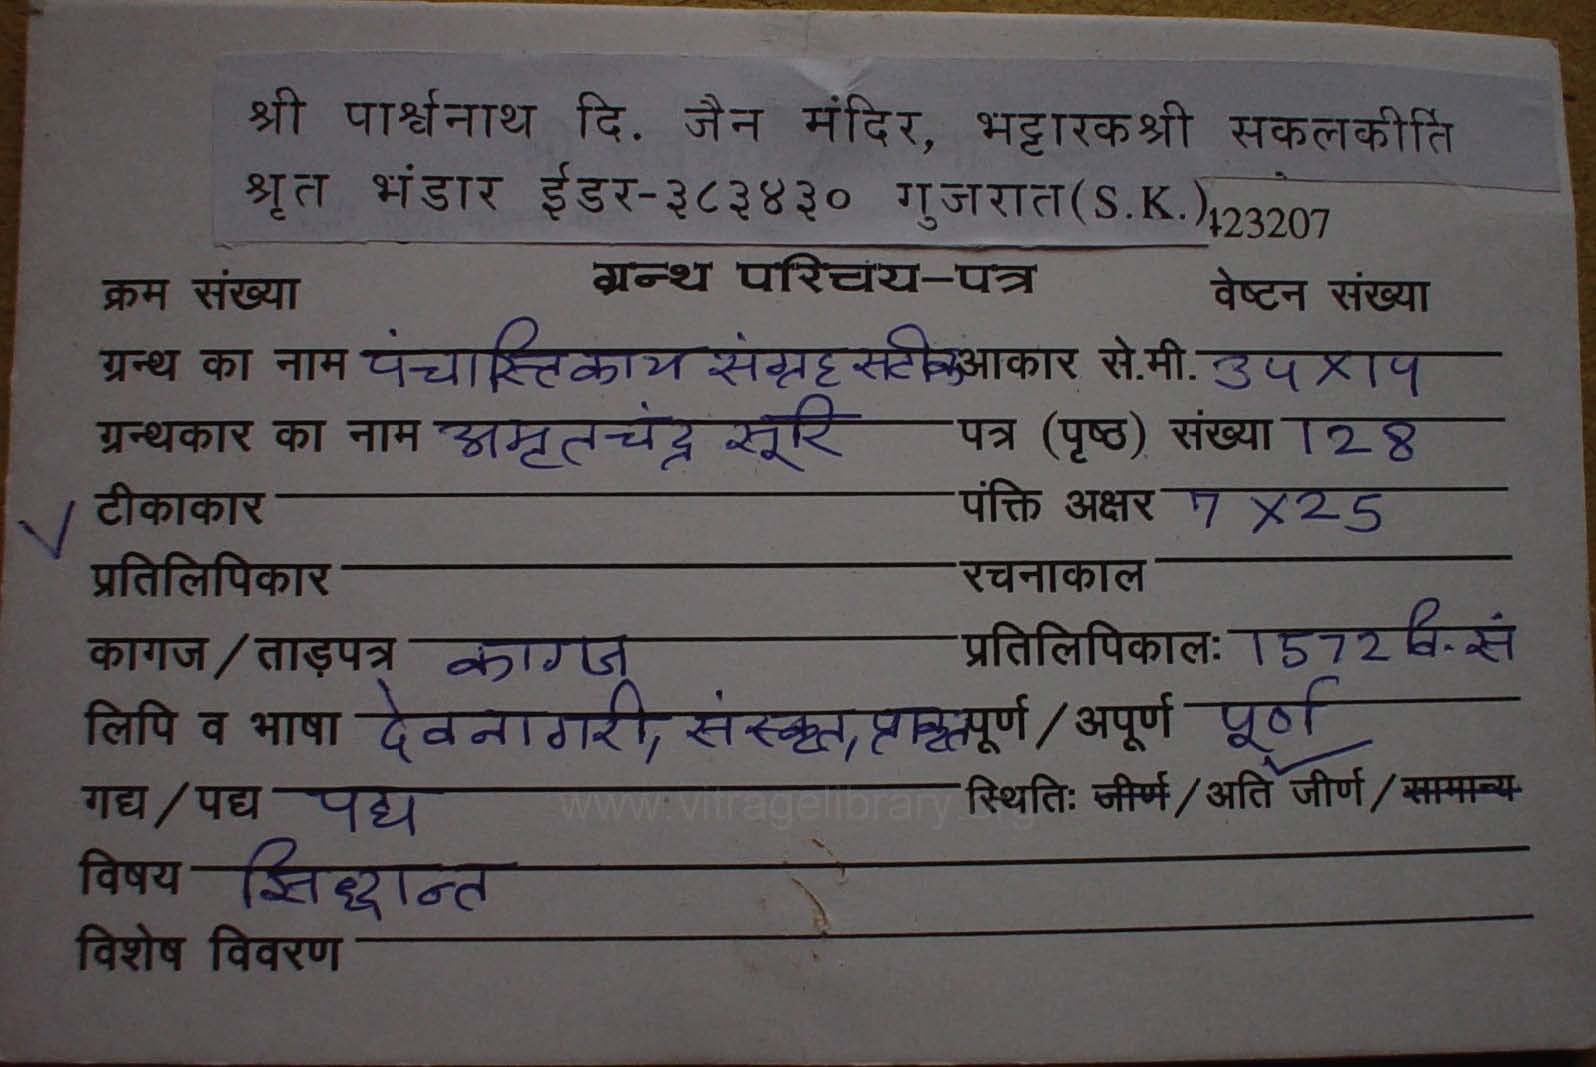 श्री पार्श्वनाथ दि. जैन मंदिर, भट्टारकश्री सकलकीर्ति
श्रृत भंडार ईडर-३८३४३० गुजरात(S.K.)
123207
क्रम संख्या ग्रन्थ परिचय-पत्र वेष्टन संख्या
ग्रन्थ का नाम पंचास्तिकाय संग्रह सटीक आकार से.मी. 34 X 14
ग्रन्थकार का नाम अमृतचंद्र सूरि पत्र (पृष्ठ) संख्या 128
टीकाकार पंक्ति अक्षर 7 X 25
प्रतिलिपिकार रचनाकाल
कागज / ताड़पत्र कागज प्रतिलिपिकालः 1572 वि. सं
लिपि व भाषा देवनागरी, संस्कृत, प्राकृत पूर्ण / अपूर्ण पूर्ण
गद्य / पद्य पद्य स्थितिः जीर्ण / अति जीर्ण / सामान्य
विषय सिद्धान्त
विशेष विवरण
www.vitragelibrary.org